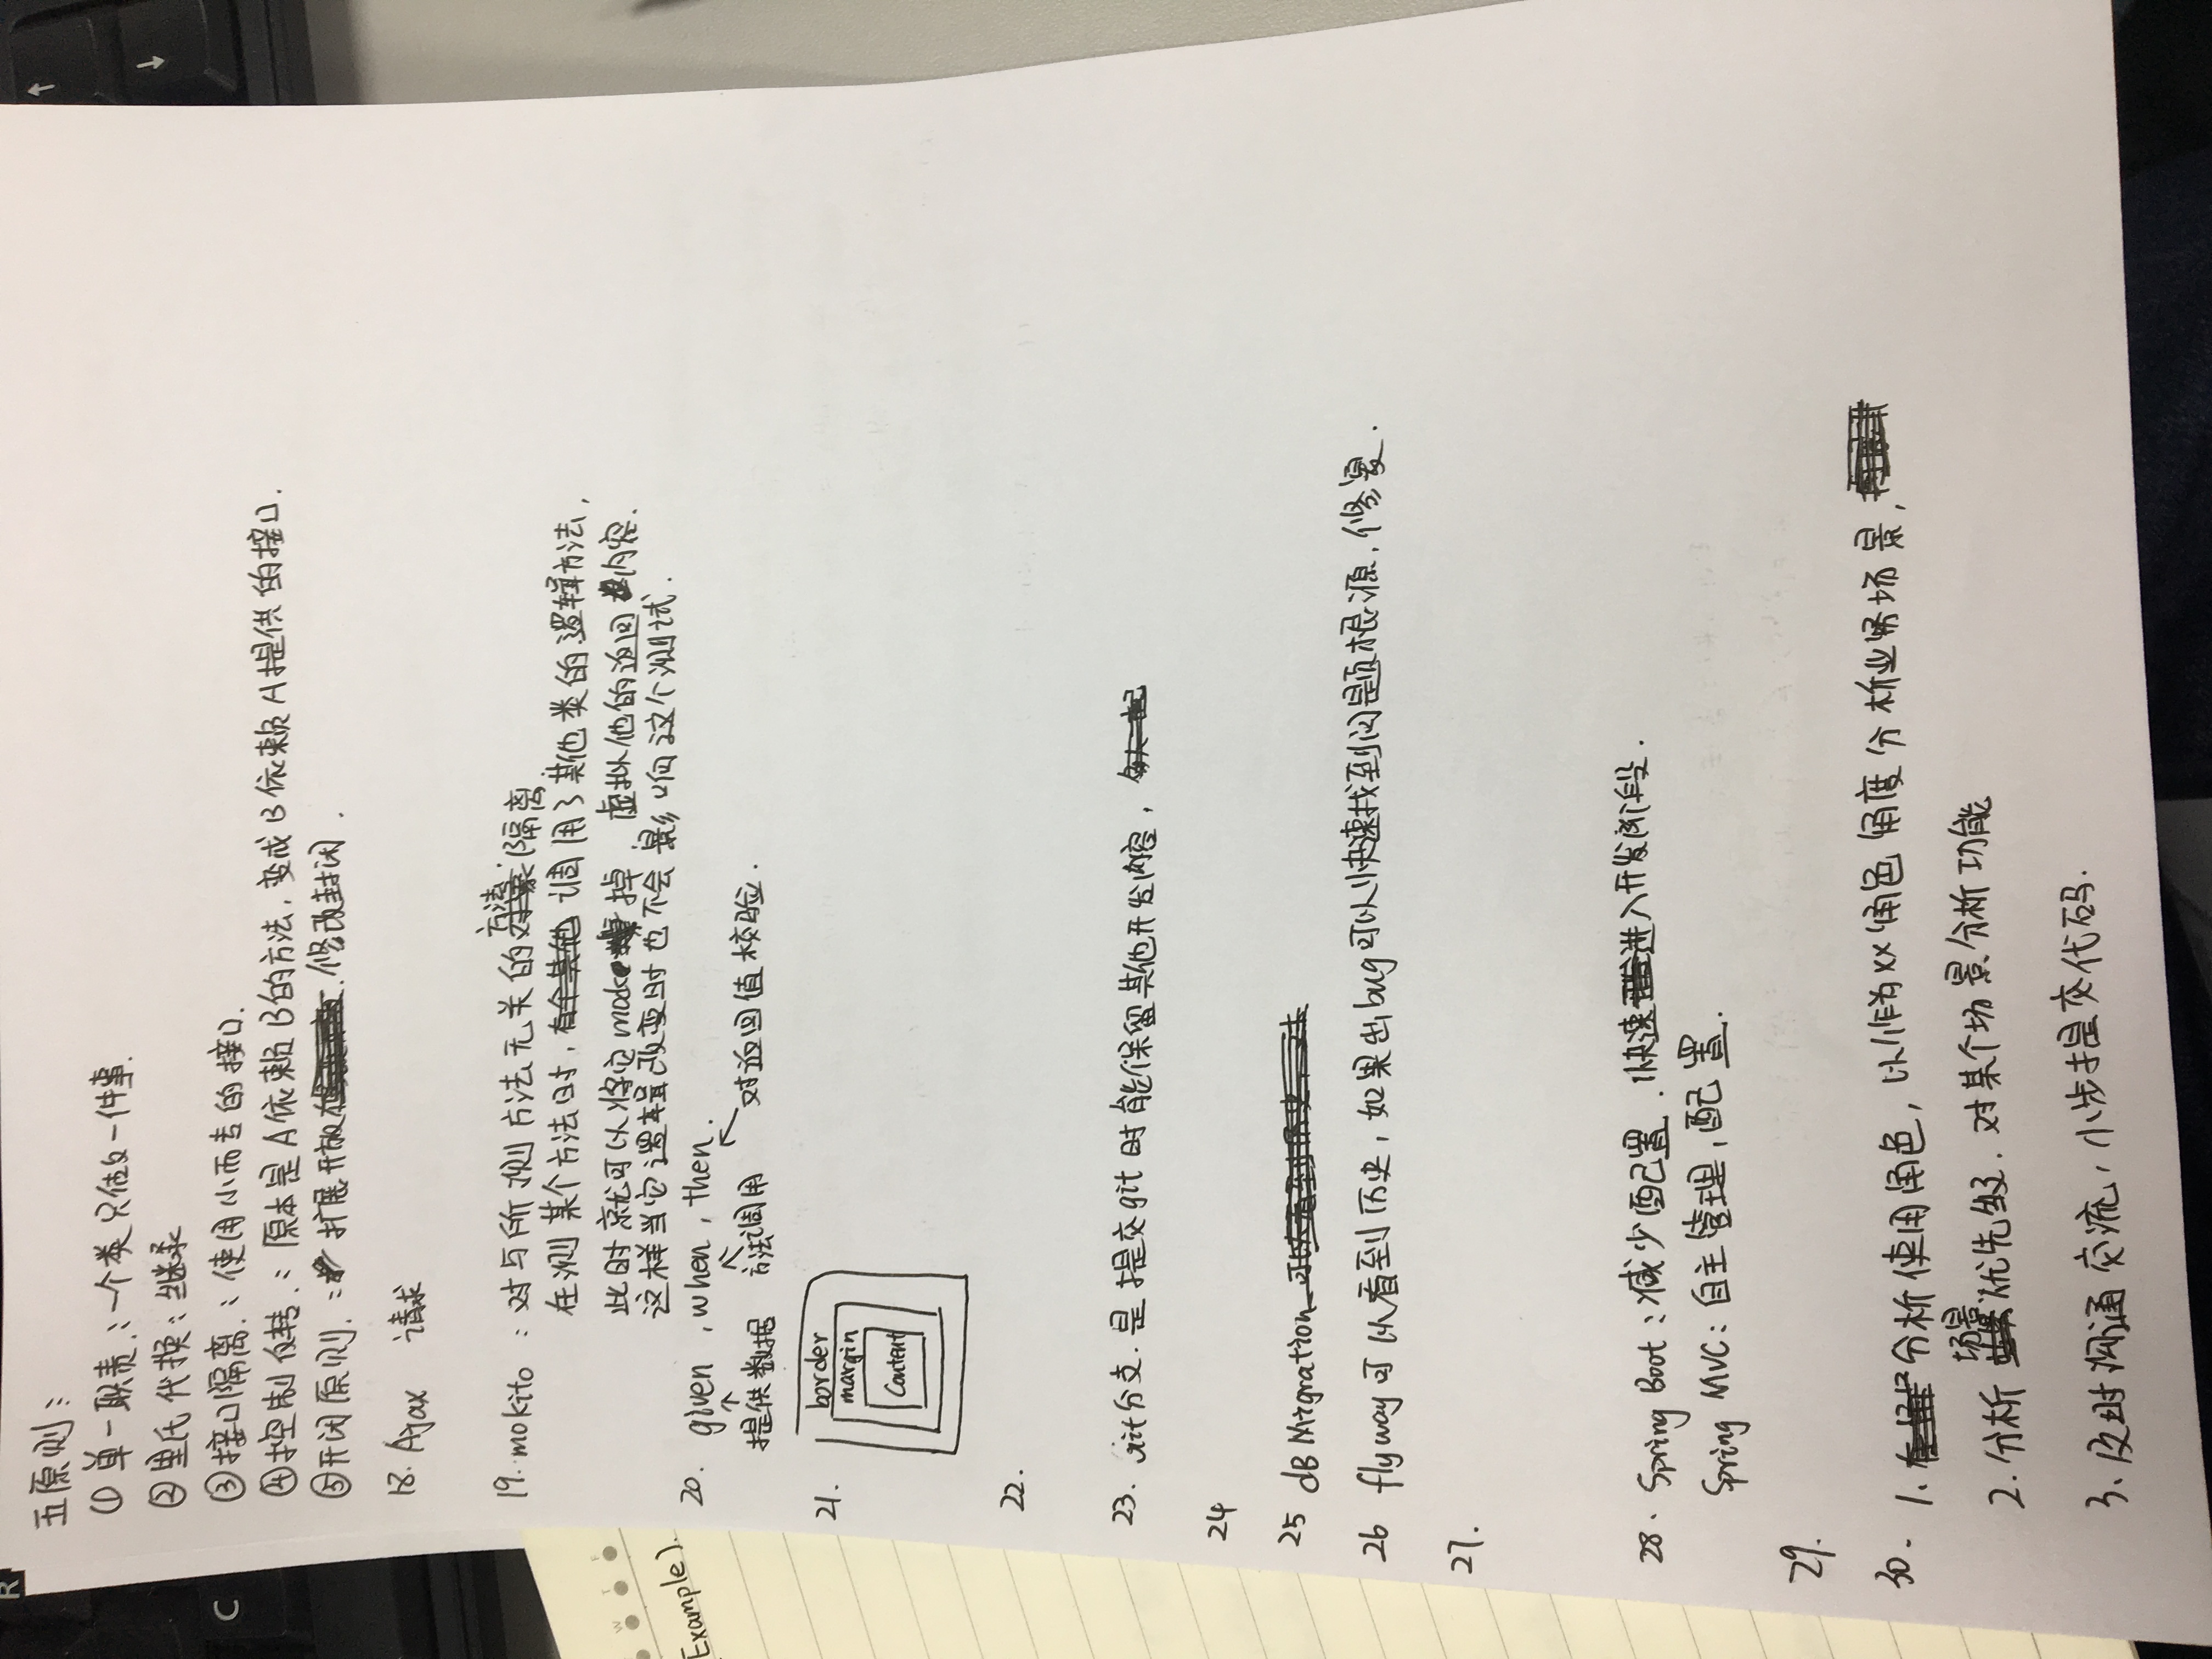 R
C
↑
↓
W T F
Example).
五原则：
① 单一职责.：一个类只做一件事.
② 里氏代换：继承
③ 接口隔离.：使用小而专的接口.
④ 控制反转.：原本是A依赖B的方法，变成B依赖A提供的接口.
⑤ 开闭原则.：扩展开放.修改封闭.
18. Ajax 请求
方法.
19. mokito：对与所测方法无关的隔离.
在测某个方法时，调用了其他类的逻辑方法，
此时就可以将它mock掉，虚拟他的返回内容.
这样当它逻辑改变时也不会影响这个测试.
20. given , when , then.
提供数据 方法调用 对返回值校验.
21. border
margin
Content
22.
23. git分支.是提交git时能保留其他开发内容，
24
25 dB Migration
26 flyway可以看到历史，如果出bug可以快速找到问题根源，修复.
27.
28. Spring Boot：减少配置.快速进入开发阶段.
Spring MVC：自主管理，配置.
29.
30. 1、分析使用角色，以作为xx角色角度分析业务场景，
场景
2.分析优先级.对某个场景分析功能
3、及时沟通交流，小步提交代码.